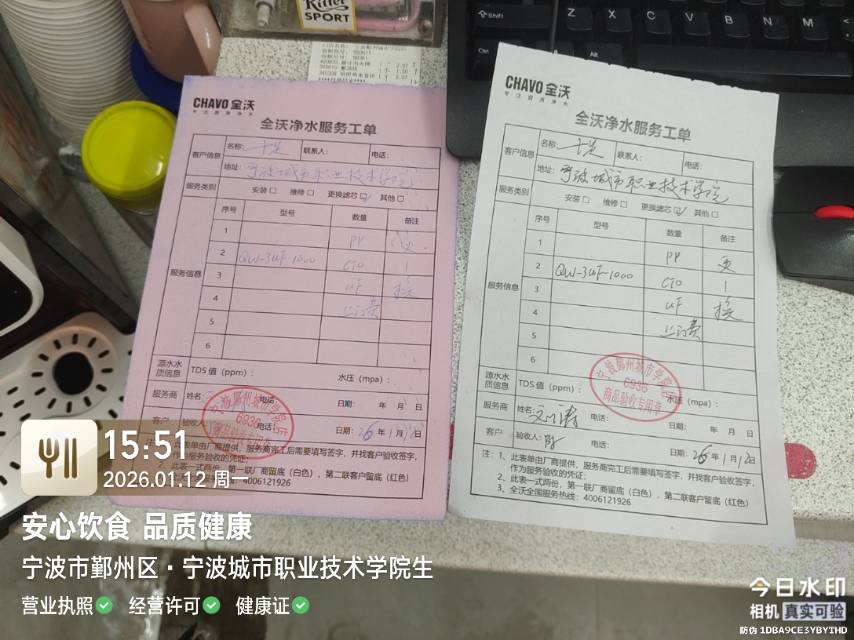 Ritter
SPORT
Shift
Z X C V B N M
Ctrl
Alt
CHAVO 全沃
专注厨房净水
全沃净水服务工单
客户信息
名称:
联系人:
电话:
地址: 宁波城市职业技术学院
服务类别
安装 维修 更换滤芯 其他
服务信息
序号 型号 数量 备注
1 PP 更
2 QW-3UF-1000 CTO 1
3 UF 换
4 上门费
5
6
源水水质信息
TDS 值 (ppm): 水压 (mpa):
服务商
姓名: 电话: 日期: 年 月 日
客户
验收人: 电话: 日期: 26年1月12日
注: 1、此表单由厂商提供,服务商完工后需要填写签字,并找客户验收签字,
作为服务验收的凭证;
2、此表一式两份,第一联厂商留底(白色),第二联客户留底(红色)
4006121926
CHAVO 全沃
专注厨房净水
全沃净水服务工单
客户信息
名称:
联系人:
电话:
地址: 宁波城市职业技术学院
服务类别
安装 维修 更换滤芯 其他
服务信息
序号 型号 数量 备注
1 PP 更
2 QW-3UF-1000 CTO 1
3 UF 换
4 上门费
5
6
源水水质信息
TDS 值 (ppm): 水压 (mpa):
6935
商品验收专用章
服务商
姓名: 电话: 日期: 年 月 日
客户
验收人: 电话: 日期: 26年1月12日
注: 1、此表单由厂商提供,服务商完工后需要填写签字,并找客户验收签字,
作为服务验收的凭证;
2、此表一式两份,第一联厂商留底(白色),第二联客户留底(红色)
3、全沃全国服务热线: 4006121926
15:51
2026.01.12 周一
安心饮食 品质健康
宁波市鄞州区·宁波城市职业技术学院生
营业执照 经营许可 健康证
今日水印
相机 真实可验
防伪 1DBA9CE3YBYTHD